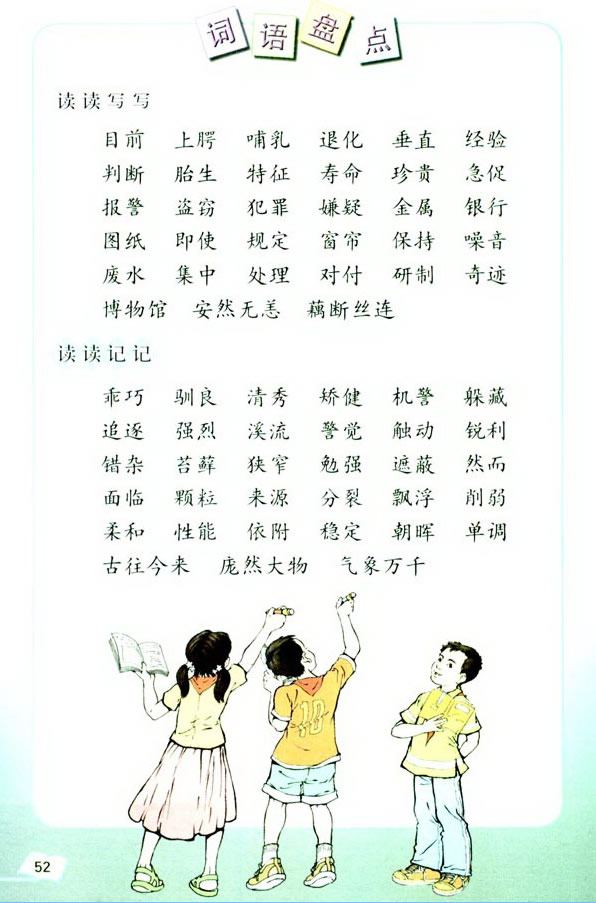 词语盘点
读读写写
目前 上腭 哺乳 退化 垂直 经验
判断 胎生 特征 寿命 珍贵 急促
报警 盗窃 犯罪 嫌疑 金属 银行
图纸 即使 规定 窗帘 保持 噪音
废水 集中 处理 对付 研制 奇迹
博物馆 安然无恙 藕断丝连
读读记记
乖巧 驯良 清秀 矫健 机警 躲藏
追逐 强烈 溪流 警觉 触动 锐利
错杂 苔藓 狭窄 勉强 遮蔽 然而
面临 颗粒 来源 分裂 飘浮 削弱
柔和 性能 依附 稳定 朝晖 单调
古往今来 庞然大物 气象万千
10
52